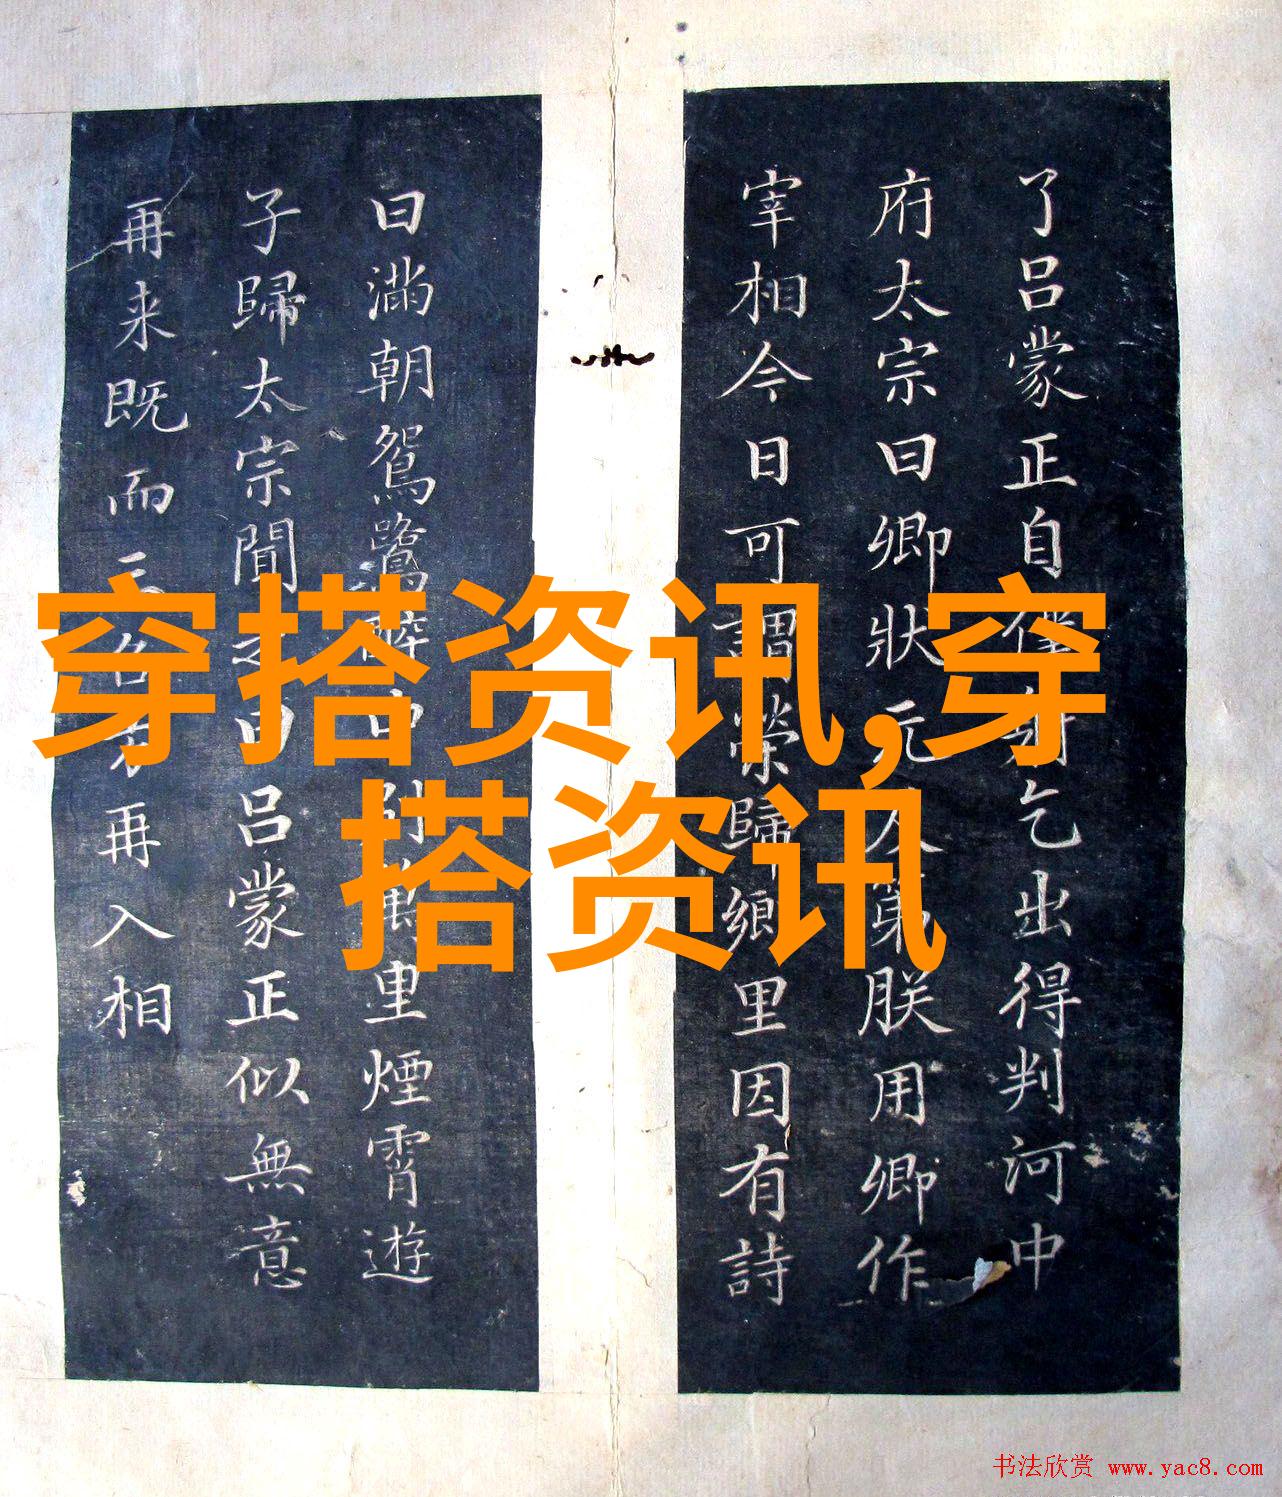 了吕蒙正自僕射乞出得判河中
府太宗曰卿狀元及第朕用卿作
宰相今日可謂榮歸鄉里因有詩
曰滿朝鴛鷺醉中別萬里煙霄遊
子歸太宗聞之曰吕蒙正似無意
再来既而再入相
穿搭资讯,穿
搭资讯
书法欣赏 www.yac8.com